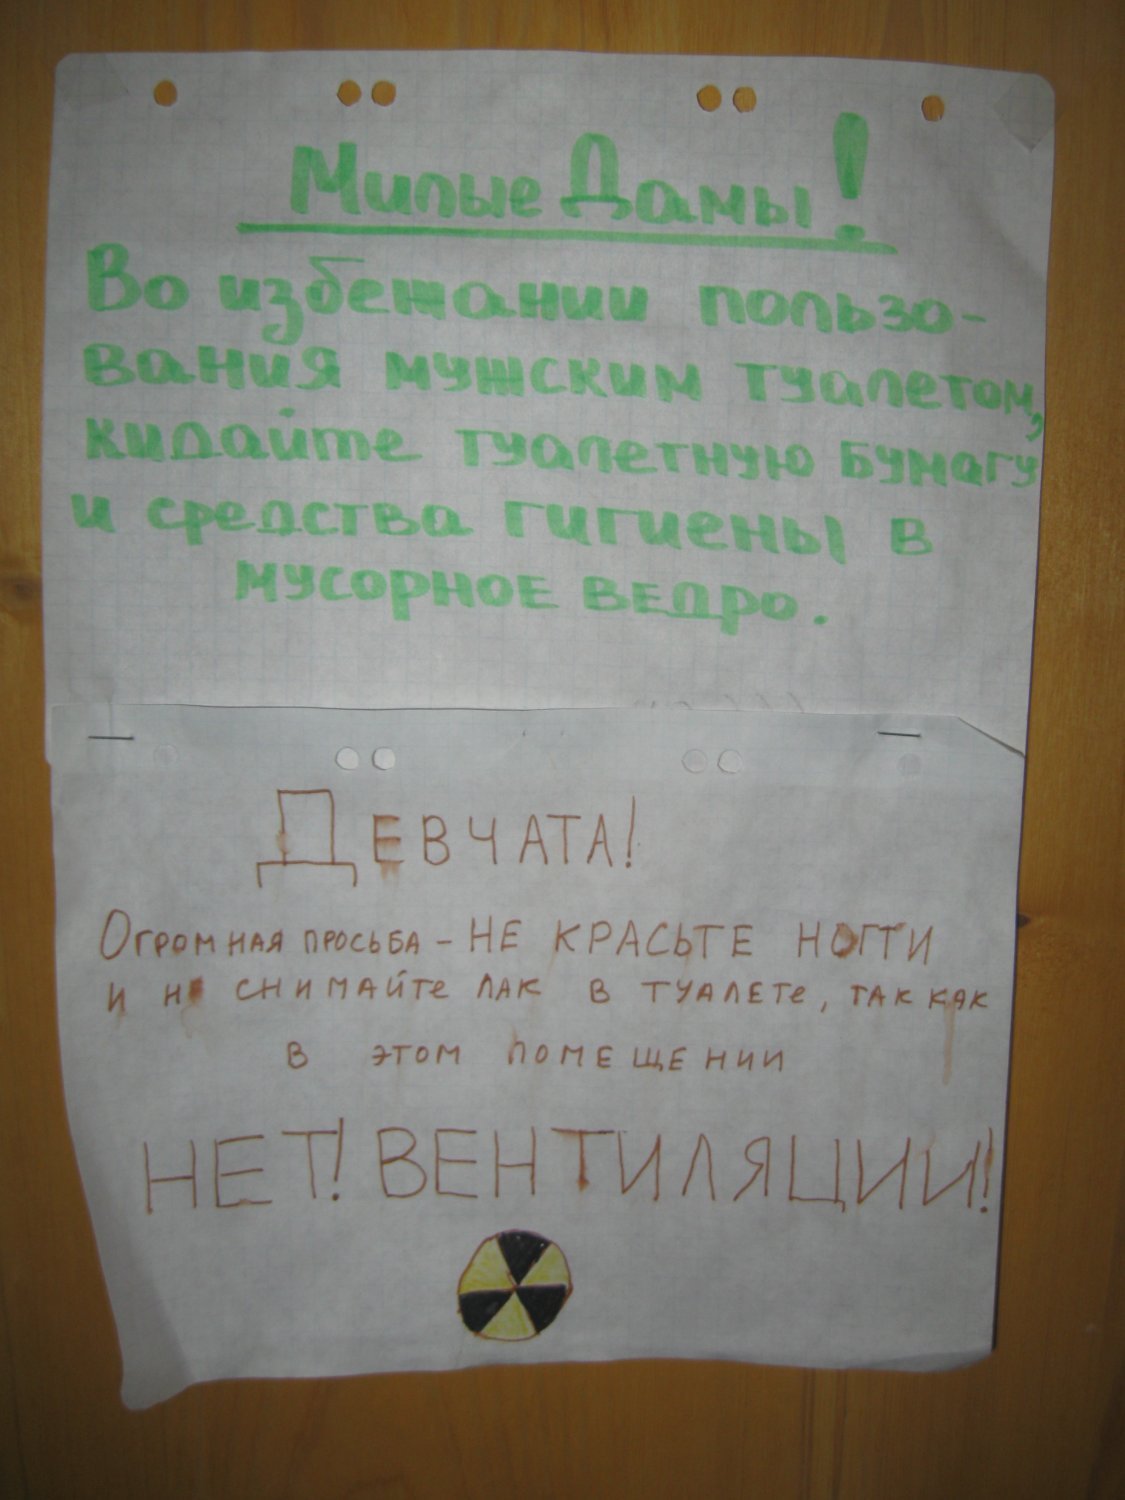 Милые Дамы!
Во избежании пользо-
вания мужским туалетом,
кидайте туалетную бумагу
и средства гигиены в
мусорное ведро.
ДЕВЧАТА!
ОГРОМНАЯ ПРОСЬБА - НЕ КРАСЬТЕ НОГТИ
И НЕ СНИМАЙТЕ ЛАК В ТУАЛЕТЕ, ТАК КАК
В ЭТОМ ПОМЕЩЕНИИ
НЕТ! ВЕНТИЛЯЦИИ!